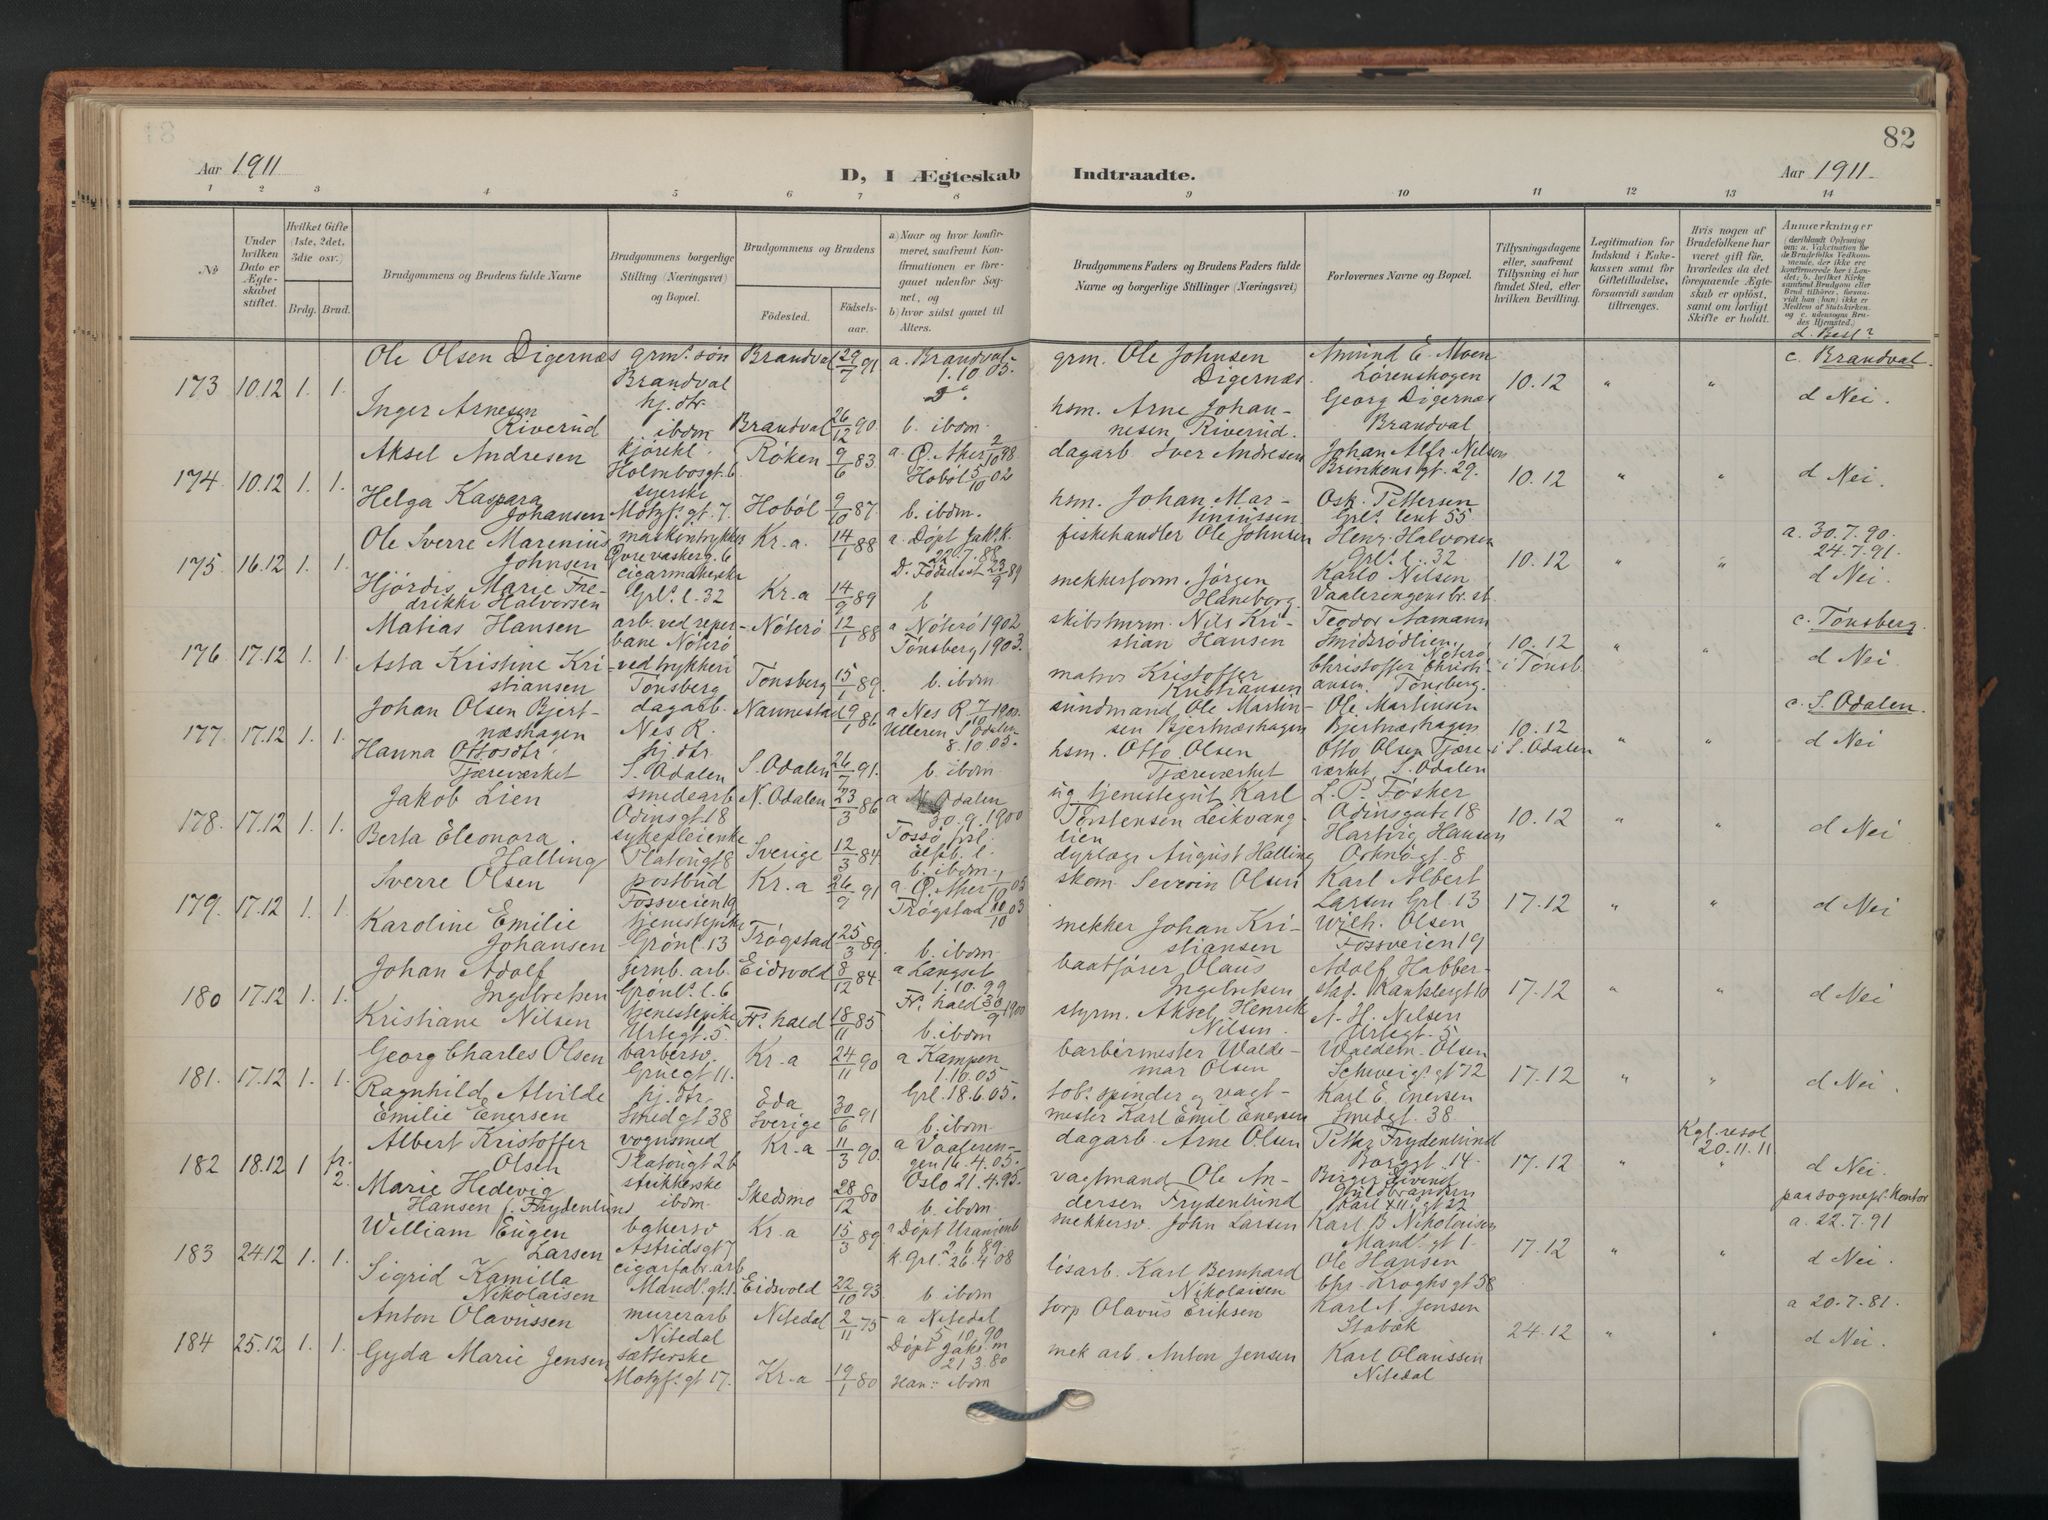 82
Aar 1911
D, I Ægteskab Indtraadte.
Aar 1911
1 2 3 4 5 6 7 8 9 10 11 12 13 14
No
Under hvilken Dato er Ægteskabet stiftet.
Hvilket Gifte (1ste, 2det, 3die osv.)
Brdg. Brud.
Brudgommens og Brudens fulde Navne
Brudgommens borgerlige Stilling (Næringsvei) og Bopæl.
Brudgommens og Brudens
Fødested. Fødselsaar.
a) Naar og hvor konfirmeret, saafremt Konfirmationen er foregaaet udenfor Sognet, og
b) hvor sidst gaaet til Alters.
Brudgommens Faders og Brudens Faders fulde Navne og borgerlige Stillinger (Næringsvei)
Forlovernes Navne og Bopæl.
Tillysningsdagene eller, saafremt Tillysning ei har fundet Sted, efter hvilken Bevilling.
Legitimation for Indskud i Enkekassen samt for Giftetilladelse, forsaavidt saadan tiltrænges.
Hvis nogen af Brudefolkene har været gift før, hvorledes da det foregaaende Ægteskab er opløst, samt om lovligt Skifte er holdt.
Anmærkninger
d. Besl?
173 10.12 1. 1.
Ole Olsen Digernæs grms. søn Brandval 29/7 91 a. Brandval 1.10.05. grm. Ole Johnsen Digernæs. Amund E. Moen Lørenskogen 10.12 " " c. Brandval.
Brandval
Inger Arnesen Riverud hj. dtr. ibdm Brandval 26/12 90 Do. b. ibdm. hsm. Arne Johannesen Riverud. Georg Digernæs Brandval d Nei.
174 10.12 1. 1.
Aksel Andresen kjørekl. Holmbosgt. 6 Røken 9/6 83 a. Ø. Aker 2/10 98 dagarb. Iver Andresen Johan Alfr Nilsen Brinkensgt. 29. 10.12 " " d Nei.
Helga Kaspara Johansen syerske Motzfs. gt. 7. Hobøl 9/10 87. Hobøl 5/10 02 b. ibdm. hsm. Johan Martiniussen Osk. Pettersen Grls. lent 55
175 16.12 1. 1.
Ole Sverre Marenius Johnsen maskintrykker Øvre vaskerg. 6 Kr.a. 14/1 88 a. Døpt Jak. k. 22.7.88 fiskehandler Ole Johnsen Henr. Halvorsen Grls. l. 32 10.12 " " a. 30.7.90. 24.7.91.
Hjørdis Marie Fredrikke Halvorsen cigarmakerske Grls. l. 32 Kr.a 14/9 89 D. Fødselsst 23/9 89 b snekkerform Jørgen Haneborg. Karlo Nilsen Vaalerengens br. st. d Nei.
176. 17.12 1. 1.
Matias Hansen arb. ved reperbane Nøterø Nøterø 12/1 88 a Nøterø 1902 skibstmrm. Nils Kristian Hansen Teodor Aamann Smidsrødlien, Nøterø 10.12 i Tønsb " " c. Tønsberg.
Asta Kristine Kristiansen ved trykkeri Tønsberg Tønsberg 15/1 89. Tønsberg 1903. b. ibdm matros Kristoffer Kristiansen Christoffer Christiansen. Tønsberg. d Nei
177. 17.12 1. 1.
Johan Olsen Bjertnæshagen dagarb. Nes R. Nannestad 19/1 86 a Nes R 7/10 1900. sundmand Ole Martinsen Bjertnæshagen Ole Martinsen Bjertnæshagen 10.12 i S. Odalen " " c. S. Odalen.
Hanna Ottosdtr. Tjæreværket hj. dtr. S. Odalen S. Odalen 26/7 91. Ulleren S Odalen 8.10.05. b. ibdm. hsm. Otto Olsen Tjæreværket Otto Olsen Tjæreværket S. Odalen d Nei
178. 17.12 1. 1.
Jakob Lien smedearb Odinsgt. 18 N. Odalen 23/3 86 a N. Odalen 30.9.1900 ug tjenestegut Karl Torstensen Leikvanglien L. P. Føsker Odinsgate 18 10.12 " " d Nei
Berta Eleonora Halling sykepleierske Platousgt 8 Sverige 12/3 84 b. ibdm. dyrlæge August Halling Hartvig Hansen gt. 8
179. 17.12 1. 1.
Sverre Olsen postbud Fossveien 19 Kr.a 26/9 91 a Ø. Aker 1/10 05 skom. Severin Olsen Karl Albert Larsen Grl. 13 17.12 " " d Nei
Karoline Emilie Johansen tjenestepike Grønl. 13 Trøgstad 25/3 89. Trøgstad 10/10 03 b. ibdm. snekker Johan Kristiansen Wilh. Olsen Fossveien 19
180 17.12 1. 1.
Johan Adolf Ingebretsen jernb. arb. Grønls. l. 6 Eidsvold 8/12 84. a Langset 1.10.99 baatfører Olaus Ingebretsen Adolf Habberstad. Rankleigt 10 17.12 " " d Nei
Kristiane Nilsen tjenestepike Urtegt. 5. Frs. hald 18/11 85 Frs. hald 30/9 1900 b. ibdm styrm. Aksel Henrik Nilsen. A. H. Nilsen Urtegt. 5
181. 17.12 1. 1.
Georg Charles Olsen barbersv. Gruegt 11. Kr.a 24/11 90 a Kampen 1.10.05. barbermester Waldemar Olsen Waldem. Olsen Schweigs. gt 72 17.12 " " d Nei.
Ragnhild Alvilde Emilie Enersen hj. dtr. Smedgt 38 Eda Sverige 30/6 91 Grl. 18.6.05. b. ibdm tob. spinder og vagtmester Karl Emil Enersen Karl E. Enersen Smedgt. 38
182 18.12 1 fr. 2.
Albert Kristoffer Olsen vognsmed Platousgt 26 Kr.a 11/3 90. a Vaalerengen 16.4.05. dagarb. Arne Olsen Petter Frydenlund Borggt. 14. 17.12 " Kgl. resol 20.11.11 " d Nei.
Marie Hedevig Hansen f. Frydenlund strikkerske ibdm. Skedsmo 28/12 80 Oslo 21.4.95. b. ibdm. vagtmand Ole Andersen Frydenlund Birger Eivind Guldbrandsen Karl XII. gt 22 paa sognepr. kontor
183 24.12 1. 1.
William Eugen Larsen bakersv Astridsgt 7 Kr.a 15/3 89 Døpt Uranienb 2.6.89 k. Grl. 26.4.08 snekkersv. John Larsen Karl B. Nikolaisen Mands. gt 1. 17.12 " " a. 22.7.91
Sigrid Kamilla Nikolaisen cigarfabr. arb Mands. gt. 1. Eidsvold 22/10 93 b. ibdm løsarb. Karl Bernhard Nikolaisen Ole Hansen Chr. Kroghs gt 58 d Nei.
184 25.12 1. 1.
Anton Olavussen murerarb Nitedal Nitedal 2/11 75 a Nitedal 5.10.90 torp Olavus Eriksen Karl A. Jensen Stabæk 24.12 " " a 20.7.81.
Gyda Marie Jensen sætterske Motzfs. gt 17. Kr.a 19/1 80 Døpt Jaks. m 21.3.80 Han: ibdm mek arb. Anton Jensen Karl Olaussen Nitedal d Nei.